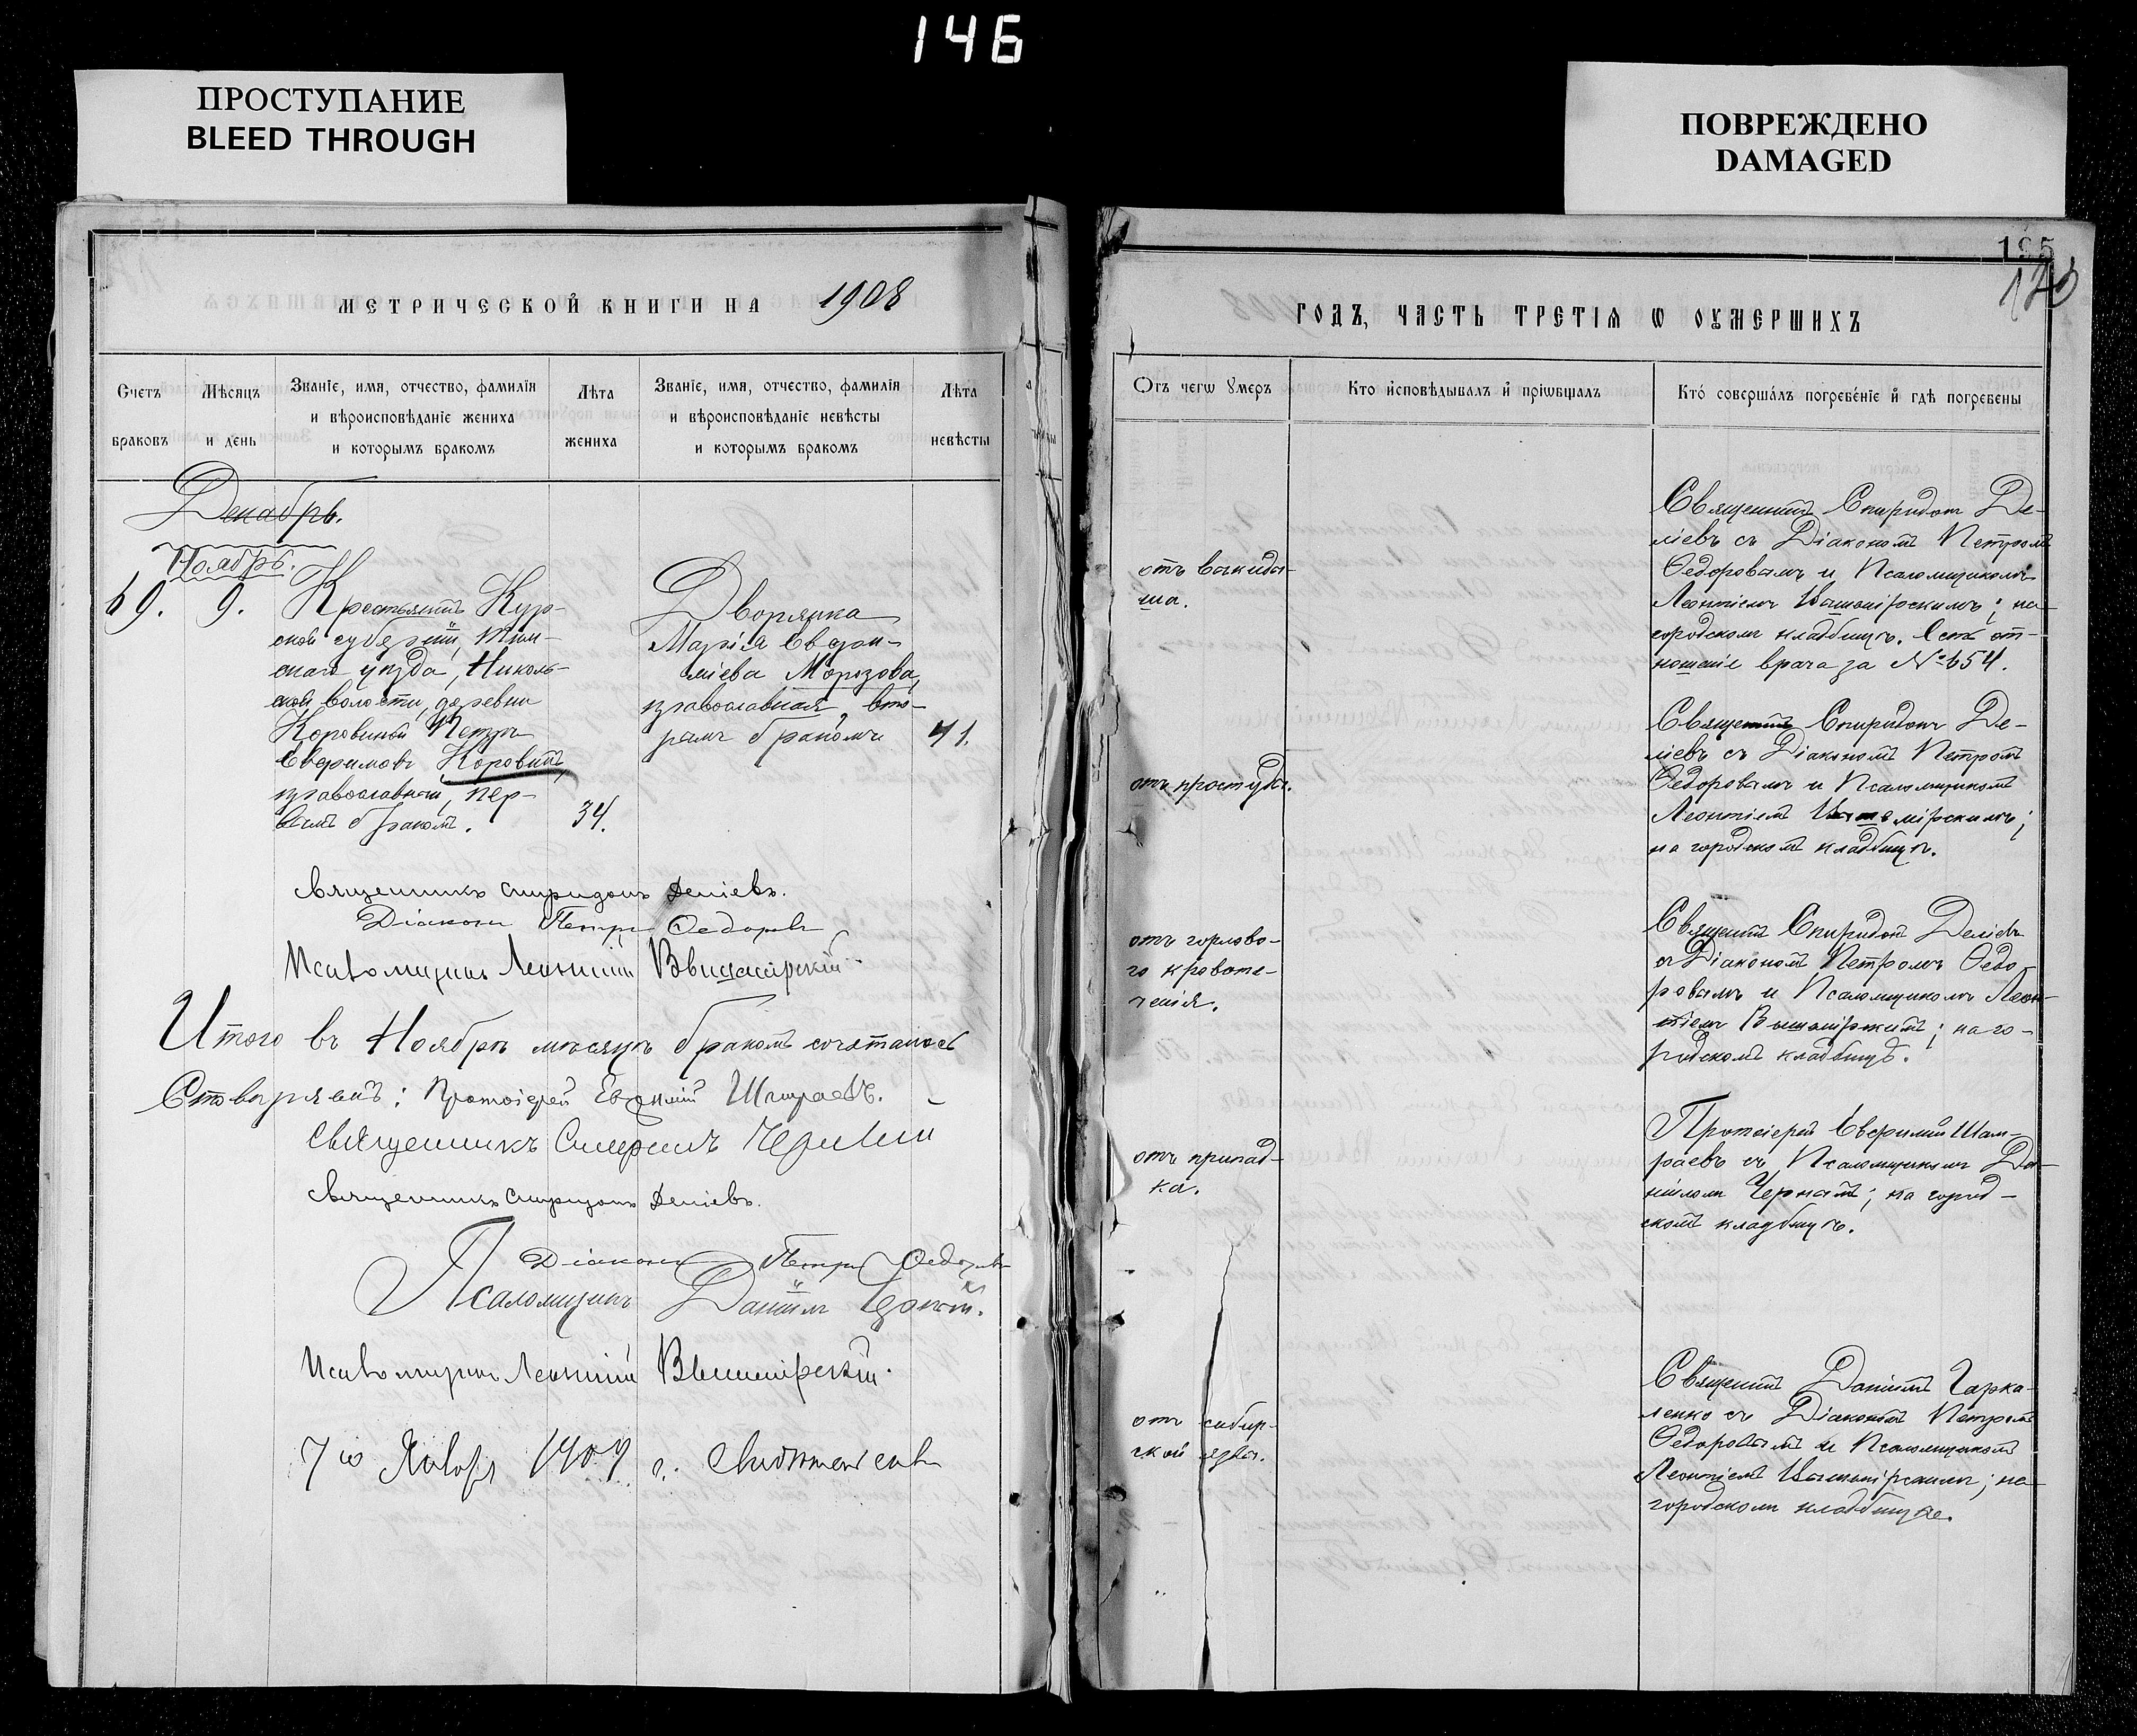 146
ПРОСТУПАНИЕ
BLEED THROUGH
ПОВРЕЖДЕНО
DAMAGED
МЕТРИЧЕСКОЙ КНИГИ НА 1908
Счетъ браковъ
Мѣсяцъ и день
Званіе, имя, отчество, фамилія
и вѣроисповѣданіе жениха
и которымъ бракомъ
Лѣта жениха
Званіе, имя, отчество, фамилія
и вѣроисповѣданіе невѣсты
и которымъ бракомъ
Лѣта невѣсты
Декабрь.
Ноябрь.
69. 9.
Крестьянинъ Кур-
ской губерніи, Тим-
скаго уѣзда, Николь-
ской волости, деревни
Коровиной Петръ
Евфимовъ Коровинъ,
православный, пер-
вымъ бракомъ.
34.
Дворянка
Марія Евфи-
міева Морозова,
православная, вто-
рымъ бракомъ
41.
Священникъ Спиридонъ Деміевъ.
Діаконъ Петръ Ѳедоровъ
Псаломщикъ Леонтій
Итого въ Ноябрѣ мѣсяцѣ бракомъ сочеталось
Протоіерей Евфимій Шамраевъ.
Священникъ
Священникъ Спиридонъ Деміевъ.
Діаконъ Петръ Ѳедоровъ
Псаломщикъ Даніилъ Черный.
Псаломщикъ Леонтій
195
ГОДЪ, ЧАСТЬ ТРЕТІЯ Ѡ ОУМЕРШИХЪ
Отъ чегѡ ꙋмеръ
Кто исповѣдывалъ и прїѡбщалъ
Кто совершалъ погребеніе и гдѣ погребены
отъ выкиды-
ша.
Священникъ Спиридонъ Де-
міевъ съ Діакономъ Петромъ
Ѳедоровымъ и Псаломщикомъ
Леонтіемъ на
городскомъ кладбищѣ. Есть от-
ношеніе врача за № 654.
отъ простуды.
Священникъ Спиридонъ Де-
міевъ съ Діакономъ Петромъ
Ѳедоровымъ и Псаломщикомъ
Леонтіемъ
на городскомъ кладбищѣ.
отъ горлово-
го кровоте-
ченія.
Священникъ Спиридонъ Деміевъ
съ Діакономъ Петромъ Ѳедо-
ровымъ и Псаломщикомъ Леон-
тіемъ на го-
родскомъ кладбищѣ.
отъ припад-
ка.
Протоіерей Евфимій Шам-
раевъ съ Псаломщикомъ Да-
ніиломъ Чернымъ; на город-
скомъ кладбищѣ.
отъ сибир-
ской язвы.
Священникъ Даніилъ Гарка-
ленко съ Діакономъ Петромъ
Ѳедоровымъ и Псаломщикомъ
Леонтіемъ на
городскомъ кладбищѣ.